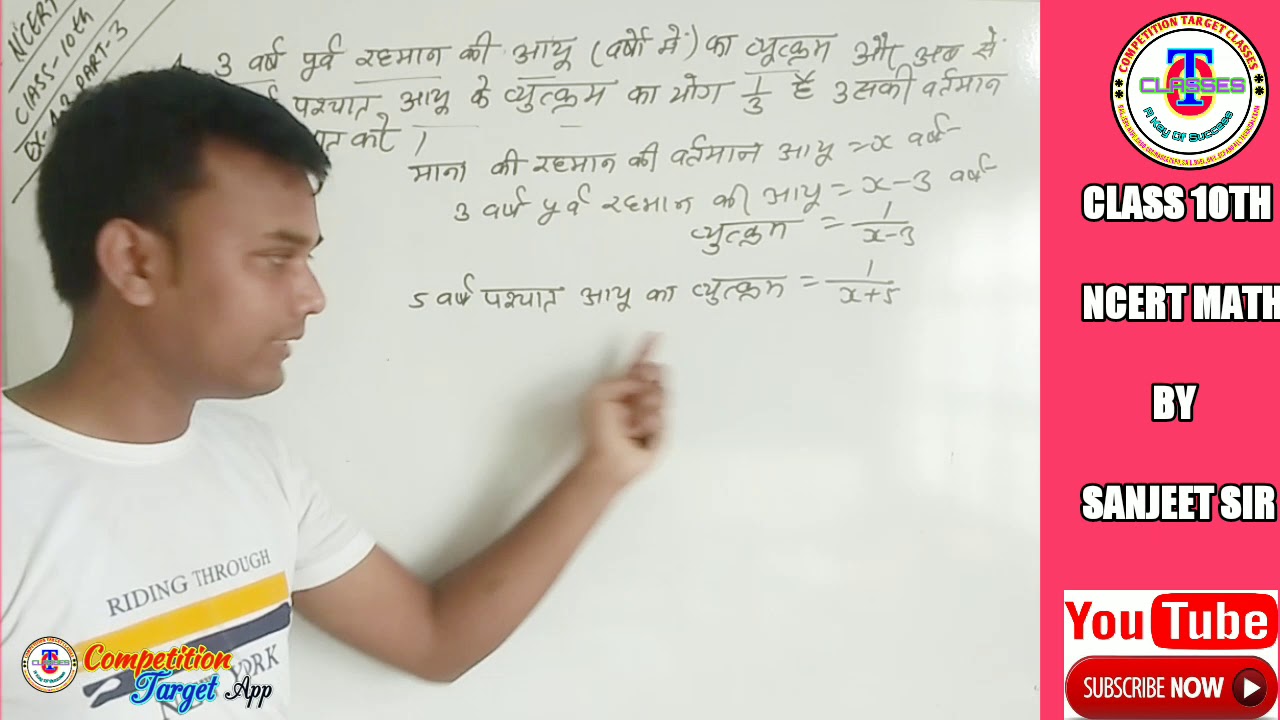 NCERT
CLASS-10th
PART-3
3 वर्ष पूर्व रहमान की आयु (वर्षो में) का व्युत्क्रम और अब से
पश्चात आयु के व्युत्क्रम का योग 1/3 है उसकी वर्तमान
करें।
माना की रहमान की वर्तमान आयु = x वर्ष
3 वर्ष पूर्व रहमान की आयु = x-3 वर्ष
व्युत्क्रम = 1/x-3
5 वर्ष पश्चात आयु का व्युत्क्रम = 1/x+5
RIDING THROUGH
YORK
COMPETITION TARGET CLASSES
CLASSES
A Key Of Success
CLASS 10TH
NCERT MATH
BY
SANJEET SIR
YouTube
SUBSCRIBE NOW
CLASSES
Competition
Target App